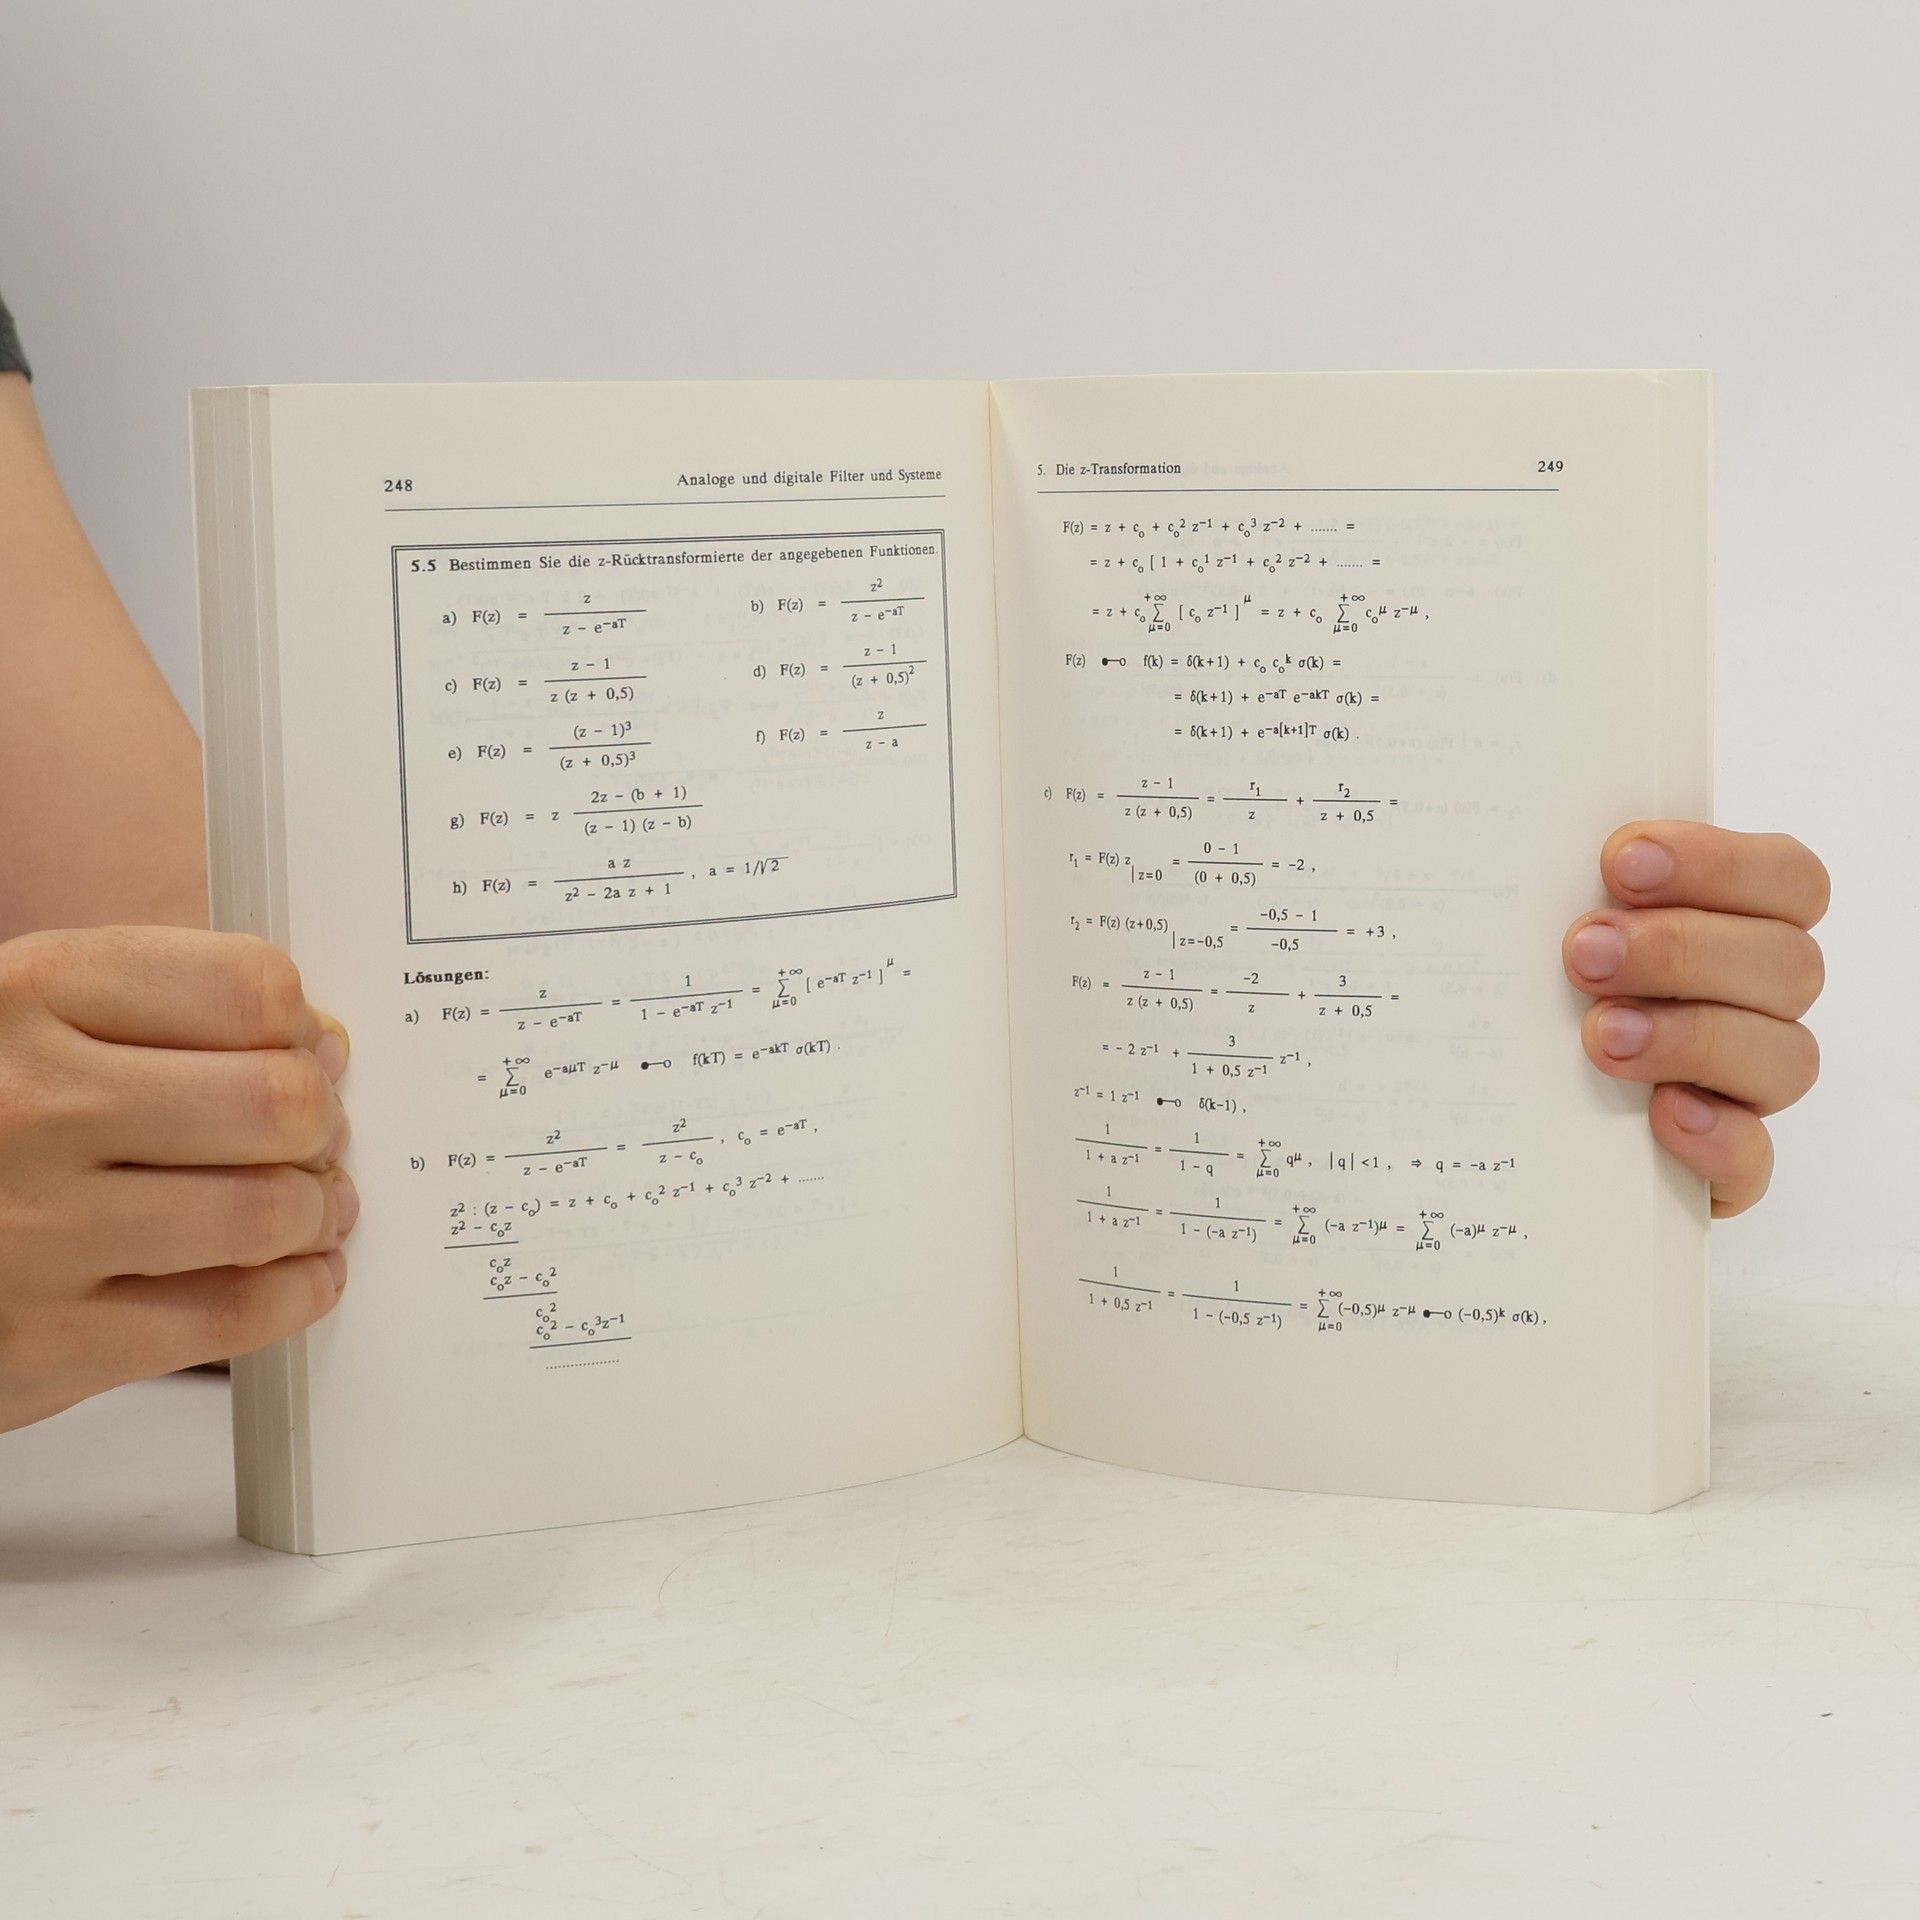 248 Analoge und digitale Filter und Systeme
5.5 Bestimmen Sie die z-Rücktransformierte der angegebenen Funktionen.
a) F(z) = z / (z − e^{−aT}) b) F(z) = z² / (z − e^{−aT})
c) F(z) = (z − 1) / (z (z + 0,5)) d) F(z) = (z − 1) / (z + 0,5)²
e) F(z) = (z − 1)³ / (z + 0,5)³ f) F(z) = z / (z − a)
g) F(z) = z (2z − (b + 1)) / ((z − 1) (z − b))
h) F(z) = a z / (z² − 2a z + 1) , a = 1/√2
Lösungen:
a) F(z) = z / (z − e^{−aT}) = 1 / (1 − e^{−aT} z^{−1}) = Σ_{μ=0}^{+∞} [ e^{−aT} z^{−1} ]^μ =
= Σ_{μ=0}^{+∞} e^{−aμT} z^{−μ} ●─○ f(kT) = e^{−akT} σ(kT) .
b) F(z) = z² / (z − e^{−aT}) = z² / (z − c₀) , c₀ = e^{−aT} ,
z² : (z − c₀) = z + c₀ + c₀² z^{−1} + c₀³ z^{−2} + .......
z² − c₀z
c₀z
c₀z − c₀²
c₀²
c₀² − c₀³z^{−1}
...................
5. Die z-Transformation 249
F(z) = z + c₀ + c₀² z^{−1} + c₀³ z^{−2} + ....... =
= z + c₀ [ 1 + c₀¹ z^{−1} + c₀² z^{−2} + ....... =
= z + c₀ Σ_{μ=0}^{+∞} [ c₀ z^{−1} ]^μ = z + c₀ Σ_{μ=0}^{+∞} c₀^μ z^{−μ} ,
F(z) ●─○ f(k) = δ(k+1) + c₀ c₀^k σ(k) =
= δ(k+1) + e^{−aT} e^{−akT} σ(k) =
= δ(k+1) + e^{−a[k+1]T} σ(k) .
c) F(z) = (z − 1) / (z (z + 0,5)) = r₁ / z + r₂ / (z + 0,5) =
r₁ = F(z) z |_{z=0} = (0 − 1) / (0 + 0,5) = −2 ,
r₂ = F(z) (z+0,5) |_{z=−0,5} = (−0,5 − 1) / −0,5 = +3 ,
F(z) = (z − 1) / (z (z + 0,5)) = −2 / z + 3 / (z + 0,5) =
= − 2 z^{−1} + 3 / (1 + 0,5 z^{−1}) z^{−1} ,
z^{−1} = 1 z^{−1} ●─○ δ(k−1) ,
1 / (1 + a z^{−1}) = 1 / (1 − q) = Σ_{μ=0}^{+∞} q^μ , |q| <1 , ⇒ q = −a z^{−1}
1 / (1 + a z^{−1}) = 1 / (1 − (−a z^{−1})) = Σ_{μ=0}^{+∞} (−a z^{−1})^μ = Σ_{μ=0}^{+∞} (−a)^μ z^{−μ} ,
1 / (1 + 0,5 z^{−1}) = 1 / (1 − (−0,5 z^{−1})) = Σ_{μ=0}^{+∞} (−0,5)^μ z^{−μ} ●─○ (−0,5)^k σ(k) ,